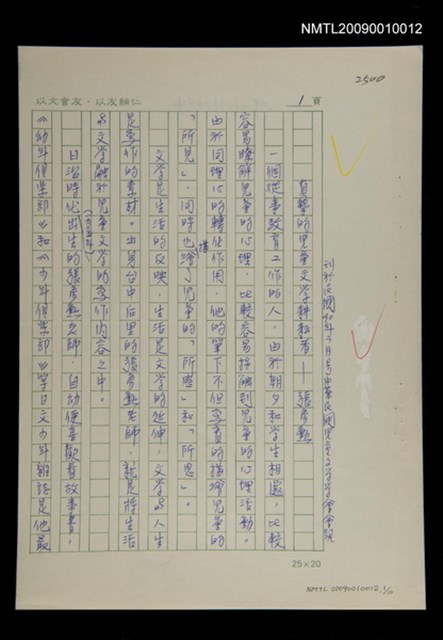 NMTL20090010012
2500
以文會友・以友輔仁
1頁
真摯的兒童文學耕耘者——張彥勳
一個從事教育工作的人，由於朝夕和學生相處，比較
容易瞭解兒童的心理，比較容易接觸到兒童的心理活動。
由於同理心的轉化作用，他的筆下不但寫實的描繪兒童的
「所見」，同時也描繪了兒童的「所感」和「所思」。
文學是生活的反映，生活是文學的延伸，文學與人生
是寫作的素材。出身台中后里的張彥勳老師，就是將生活
與文學融於兒童文學的寫作內容之中。
日治時代出生的張彥勳老師，自幼便喜歡看故事書，
《幼年俱樂部》和《少年俱樂部》等日文少年雜誌是他最
25×20
NMTL 20090010012